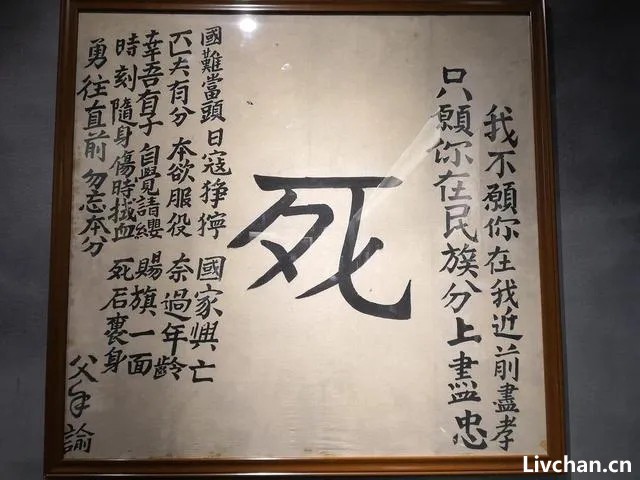 我不願你在我近前盡孝
只願你在民族分上盡忠
死
國難當頭 日寇猙獰 國家興亡
匹夫有分 本欲服役 奈過年齡
幸吾有子 自覺請纓 賜旗一面
時刻隨身 傷時拭血 死后裹身
勇往直前 勿忘本分
父手諭
Livchan.cn